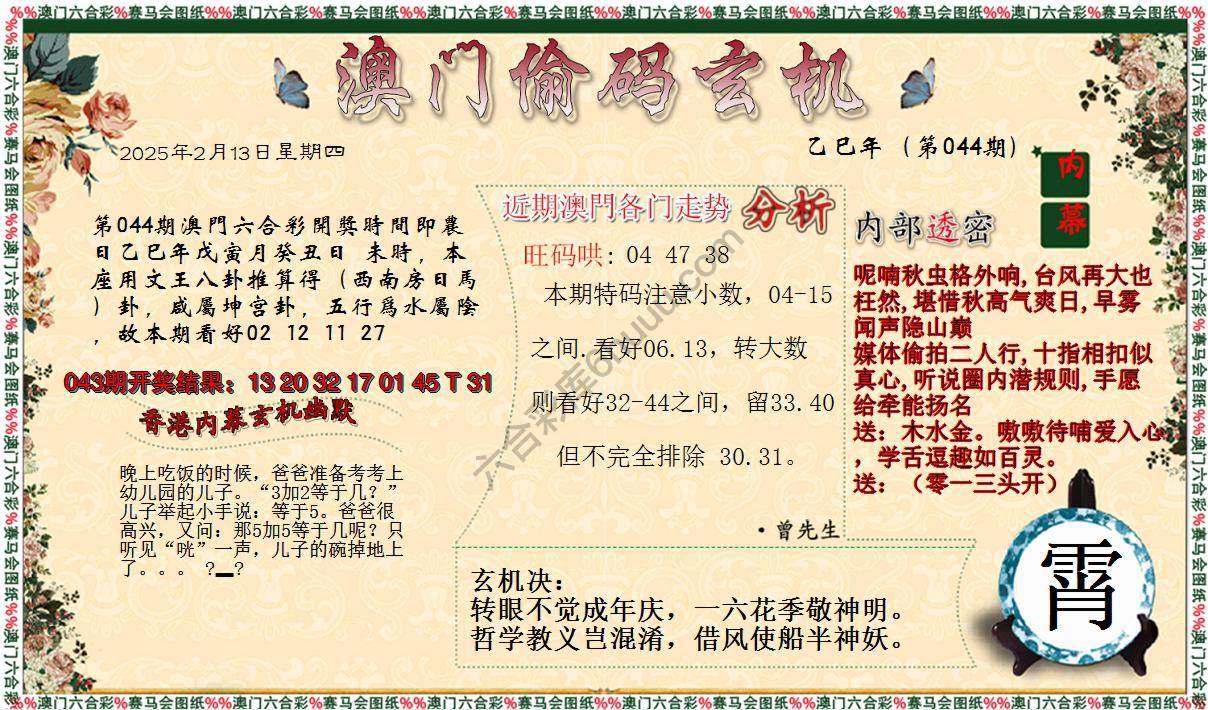 %%澳门六合彩%赛马会图纸%%澳门六合彩%赛马会图纸%%澳门六合彩%赛马会图纸%%澳门六合彩%赛马会图纸%%澳门六合彩%赛马会图纸%%澳门六合彩%赛马会图纸%%
澳门偷码玄机
2025年2月13日星期四
乙巳年（第044期）
内
幕
第044期澳門六合彩開獎時間即農
日乙巳年戊寅月癸丑日 未時，本
座用文王八卦推算得（西南房日馬
）卦，咸屬坤宫卦，五行爲水屬陰
，故本期看好02 12 11 27
043期开奖结果：13 20 32 17 01 45 T 31
香港内幕玄机幽默
晚上吃饭的时候，爸爸准备考考上
幼儿园的儿子。“3加2等于几？”
儿子举起小手说：等于5。爸爸很
高兴，又问：那5加5等于几呢？只
听见“咣”一声，儿子的碗掉地上
了。。。 ?▂?
近期澳門各门走势 分析
旺码哄: 04 47 38
本期特码注意小数，04-15
之间.看好06.13，转大数
则看好32-44之间，留33.40
但不完全排除 30.31。
·曾先生
内部透密
呢喃秋虫格外响,台风再大也
枉然,堪惜秋高气爽日,早雾
闻声隐山巅
媒体偷拍二人行,十指相扣似
真心,听说圈内潜规则,手愿
给牵能扬名
送：木水金。嗷嗷待哺爱入心
，学舌逗趣如百灵。
送：（零一三头开）
玄机决：
转眼不觉成年庆，一六花季敬神明。
哲学教义岂混淆，借风使船半神妖。
霄
%%澳门六合彩%赛马会图纸%%澳门六合彩%赛马会图纸%%澳门六合彩%赛马会图纸%%澳门六合彩%赛马会图纸%%澳门六合彩%赛马会图纸%%澳门六合彩%赛马会图纸%%